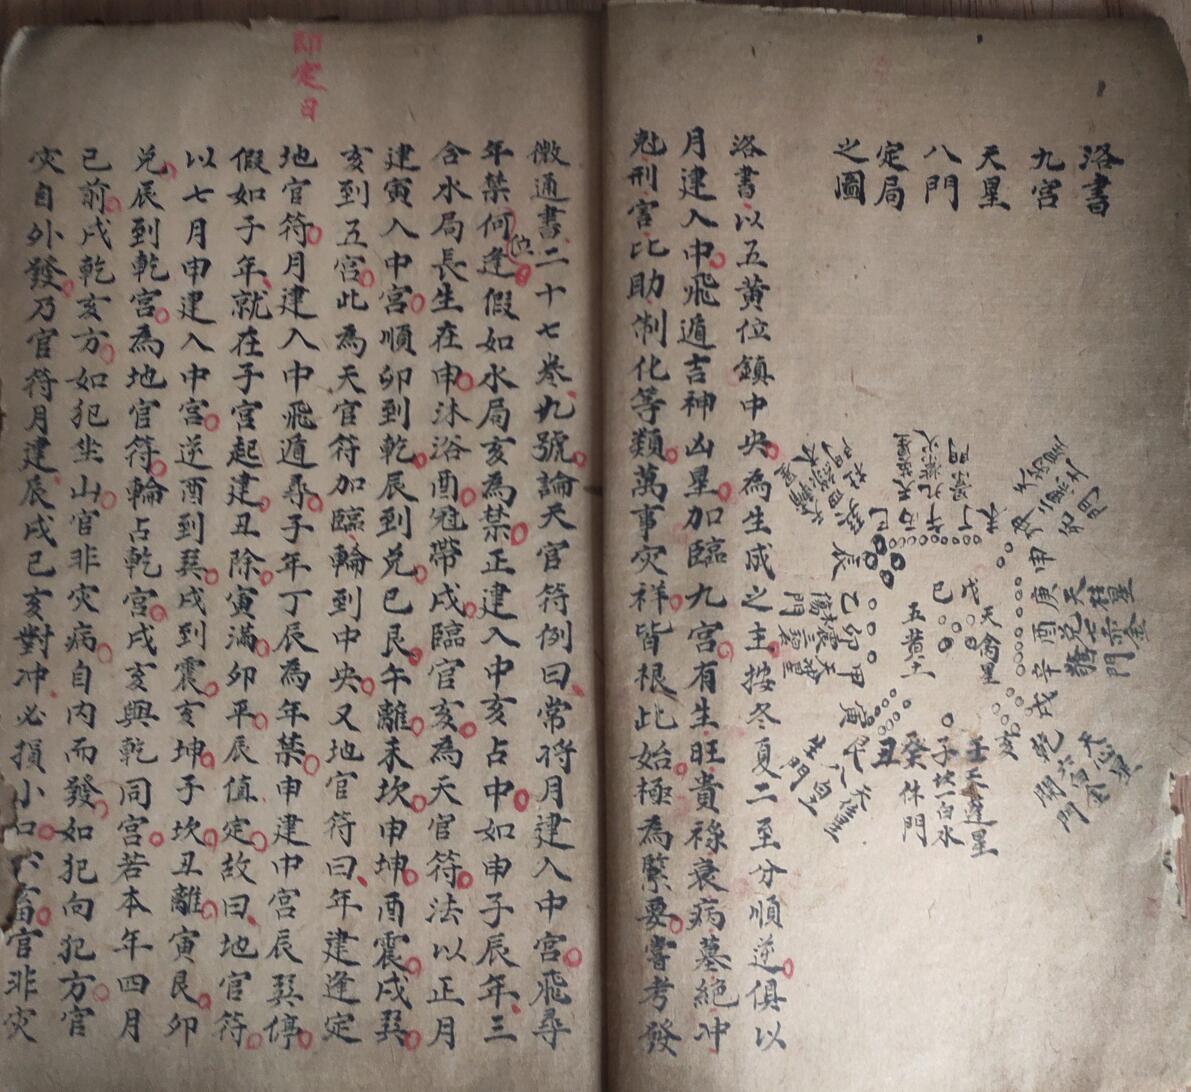 洛書
九宮
天星
八門
定局
之圖
丁午丙
九紫火
景門
未坤申
死門
庚酉辛
天柱星
兌七赤金
驚門
戌乾亥
天心星
六白金
開門
壬子癸
天蓬星
坎一白水
休門
丑艮寅
天任星
八白土
生門
甲卯乙
震三碧
傷門
辰
巳
戊
己
天禽星
五黃土
洛書以五黃位鎮中央為生成之主按冬夏二至分順逆俱以
月建入中飛遁吉神凶星加臨九宮有生旺貴祿衰病墓絕冲
尅刑害比助制化等類萬事灾祥皆根此始極為緊要嘗考發
微通書二十七卷九號論天官符例曰常將月建入中宮飛尋
年禁何位逢假如水局亥為禁正建入中亥占中如申子辰年三
合水局長生在申沐浴酉冠帶戌臨官亥為天官符法以正月
建寅入中宮順卯到乾辰到兌巳艮午離未坎申坤酉震戌巽
亥到五宮此為天官符加臨輪到中央又地官符曰年建逢定
即定日
地官符月建入中飛遁尋子年丁辰為年禁申建中宮辰巽停
假如子年就在子宮起建丑除寅滿卯平辰值定故曰地官符
以七月申建入中宮逆酉到巽戌到震亥坤子坎丑離寅艮卯
兌辰到乾宮為地官符輪占乾宮戌亥與乾同宮若本年四月
已前戌乾亥方如犯坐山官非灾病自內而發如犯向犯方官
灾自外發乃官符月建辰戌巳亥對冲必損小口六畜官非灾